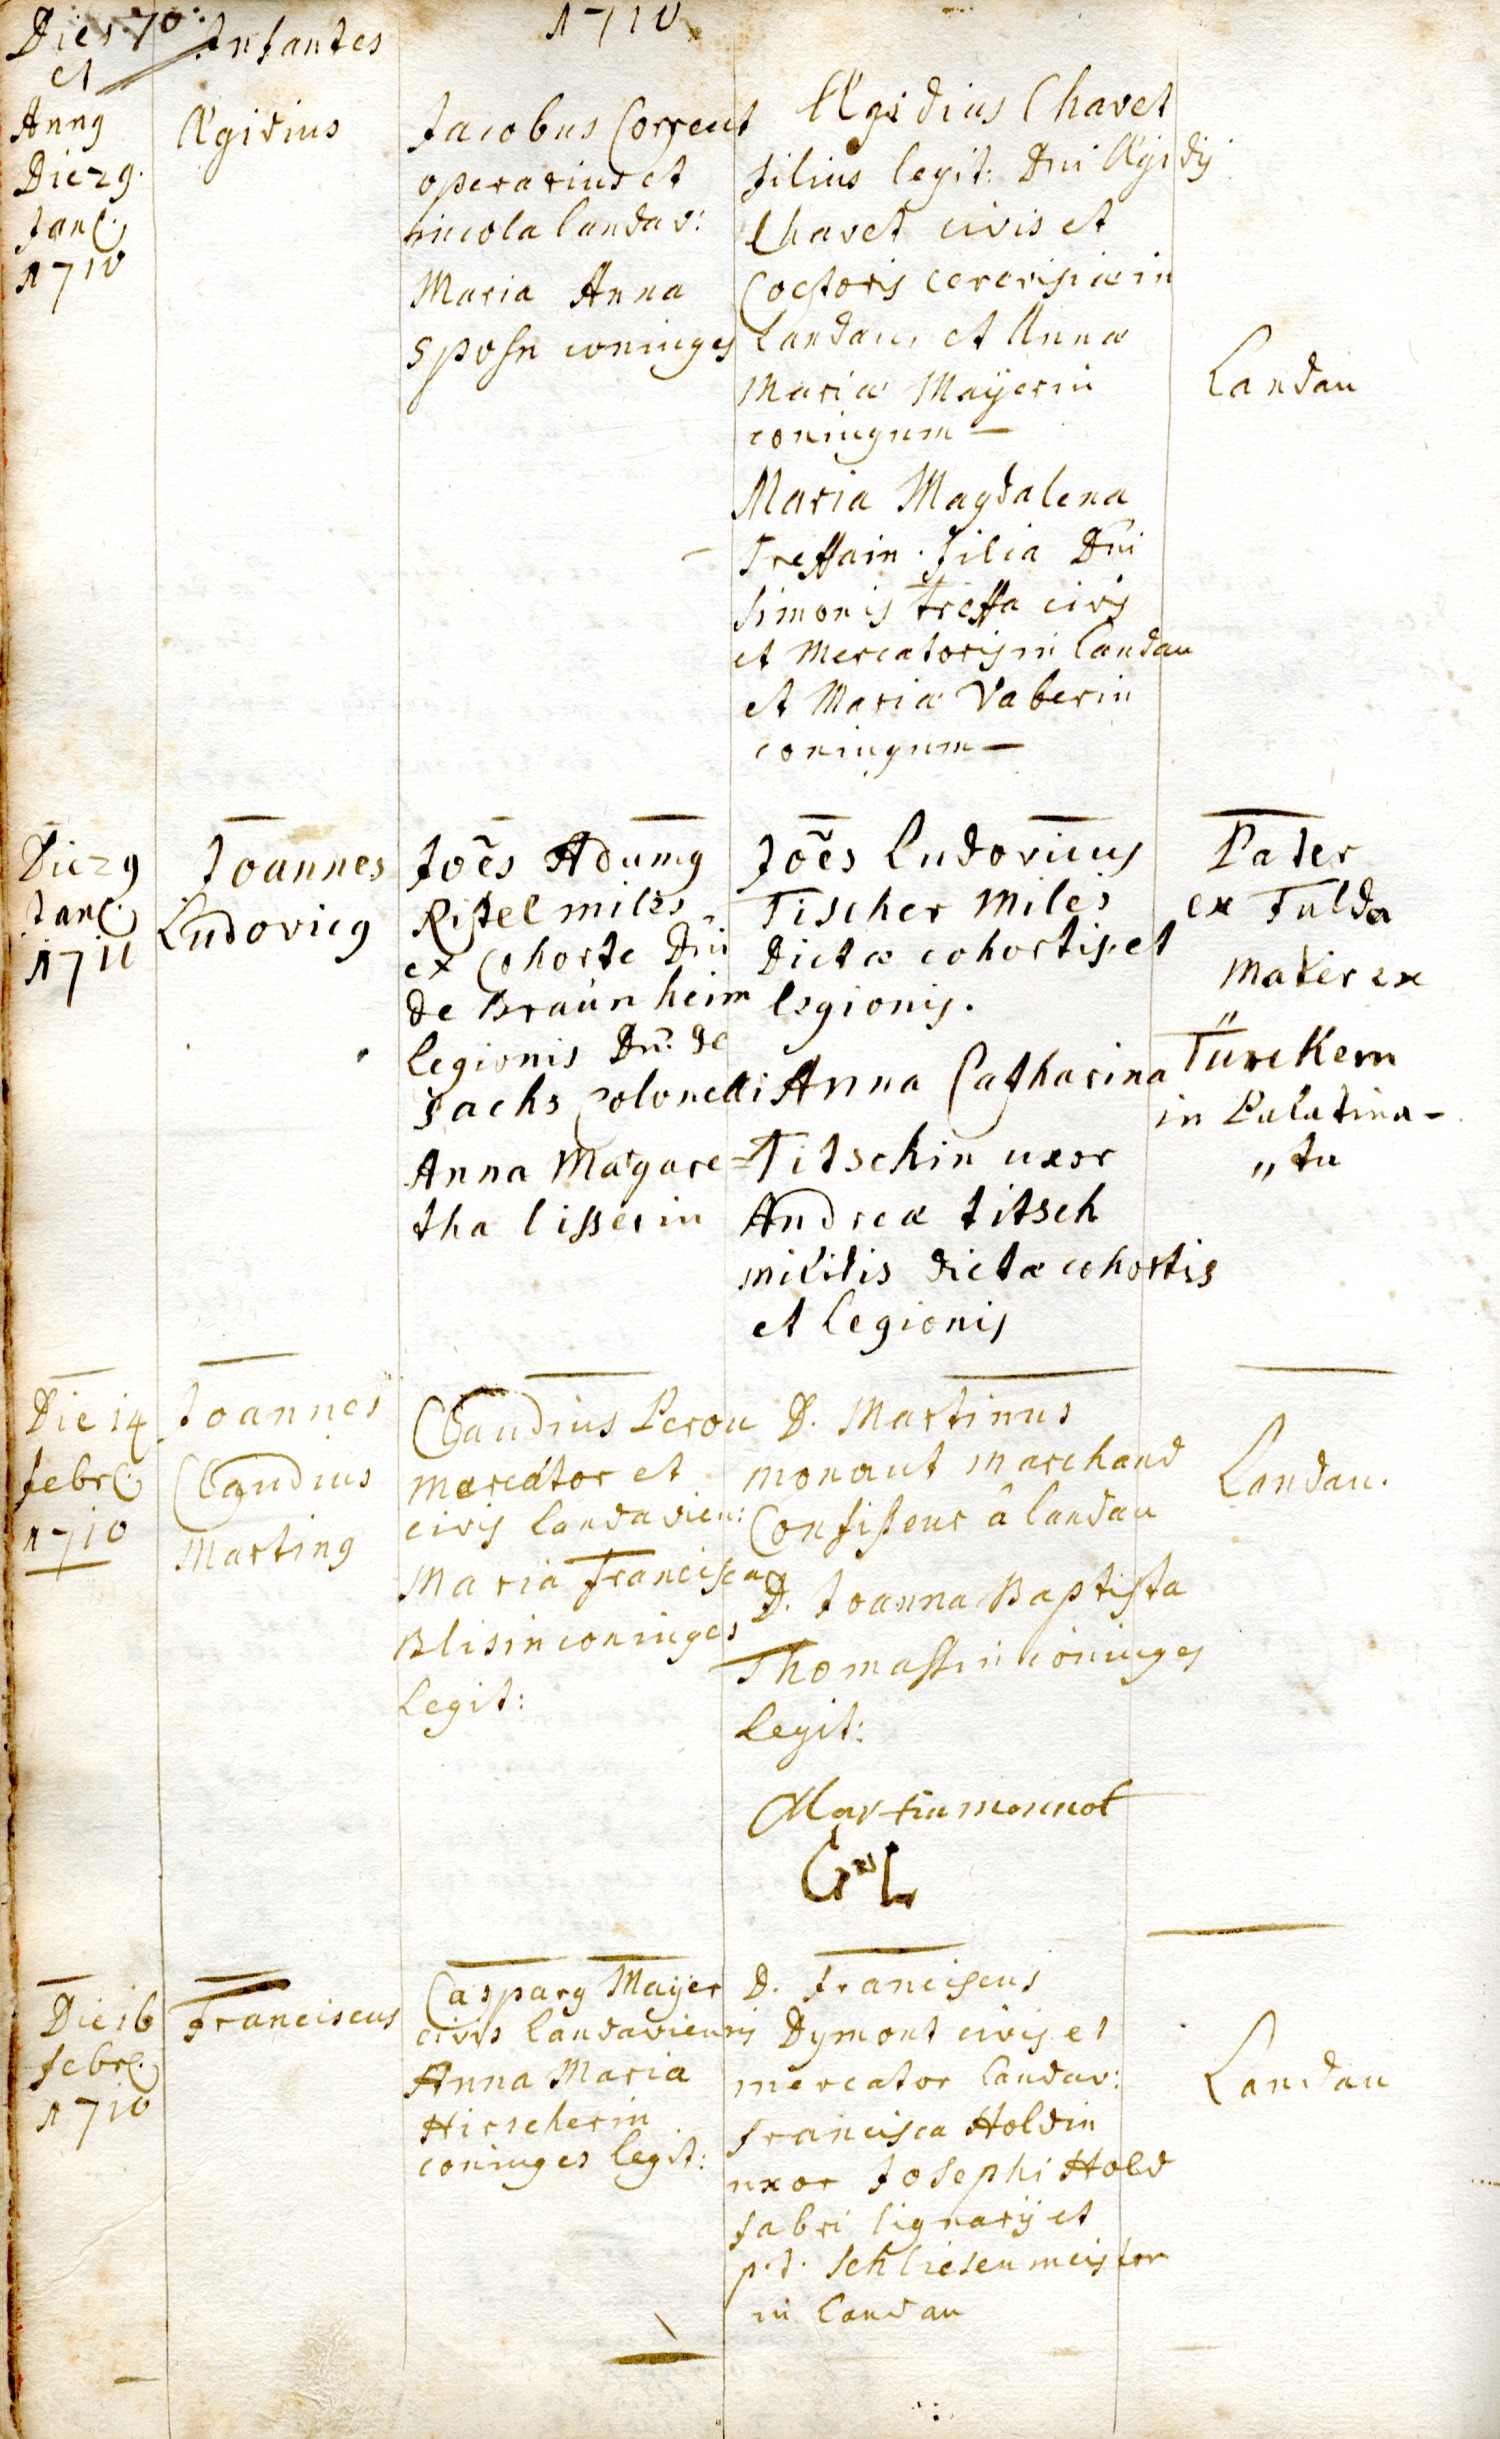 Dies 70:
et
Anng
Infantes
1710
Die 29.
Janr:
1710
Ægidius
Jacobus Corrent
operarius et
incola landav:
Maria Anna
Sposn coniuges
Ægidius Chavet
filius legit: Dni Ægidij
Chavet civis et
Coctoris cerevisiæ in
Landau, et Annæ
Mariæ Mayerin
coniugum —
Maria Magdalena
Treffain. filia Dni
Simonis Treffa civis
et Mercatoris in Landau
et Mariæ Vaberin
coniugum —
Landau
Die 29
Janr:
1710
Joannes
Ludovicg
Joẽs Adamg
Ristel miles
ex Cohorte Dni
de Braunheim
legionis Dn: de
Sachs Colonelli
Anna Margare=
tha lisserin
Joẽs Ludovicus
Tischer Miles
Dictæ cohortis et
legionis.
Anna Catharina
Titschin uxor
Andreæ Titsch
militis dictæ cohortis
et legionis
Pater
ex Fulda
Mater ex
Türckem
in Palatina-
„tu
Die 14
febr:
1710
Joannes
Claudius
Marting
Claudius Perou
mercator et
civis landavien:
Maria Francisca
Blisin coniuges
Legit:
D. Martinus
monaut marchand
Confiseur â landau
D. Joanna Baptista
Thomassin coniuges
Legit:
Martin monnot
Landau.
Die 16
febr:
1710
Franciscus
Casparg Mayer
civis landaviensis
Anna Maria
Hirscherin
coniuges legit:
D. Franciscus
Dymont civis et
mercator landav:
Francisca Holdin
uxor Josephi Hold
fabri lignarij et
p.t. Schliesenmeister
in Landau
Landau